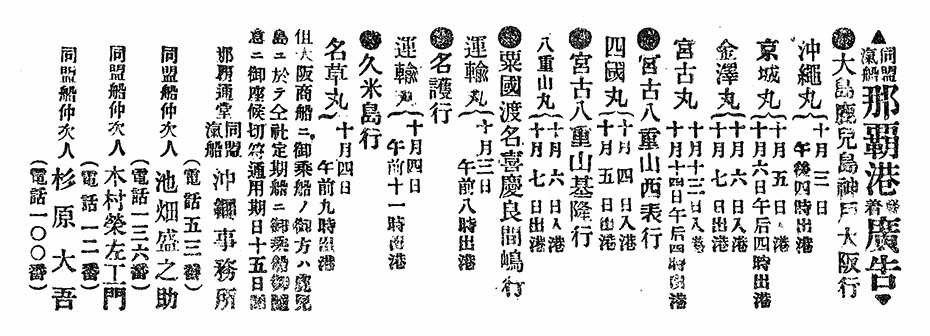 ▲同盟汽船那覇港發着廣告▼
●大島鹿兒島神戸大阪行
沖繩丸 十月三日 午後四時出港
京城丸 十月五日入港 十月六日午后四時出港
金澤丸 十月六日入港 十月七日出港
宮古丸 十月十三日入港 十月十四日午后四時出港
●宮古八重山西表行
四國丸 十月四日入港 十月五日出港
●宮古八重山基隆行
八重山丸 十月六日入港 十月七日出港
●粟國渡名喜慶良間嶋行
運輸丸 十月三日 午前八時出港
●名護行
運輸丸 十月四日 午前十一時出港
●久米島行
名草丸 十月四日 午前九時出港
但大阪商船ニ御乘船ノ御方ハ鹿兒
島ニ於テ仝社定期船ニ御乘船御隨
意ニ御座候切符通用期日十五日間
那覇通堂 同盟汽船 沖繩事務所
(電話五三番)
同盟船仲次人 池畑盛之助
(電話一三六番)
同盟船仲次人 木村榮左工門
(電話一二番)
同盟船仲次人 杉原大吾
(電話一〇〇番)